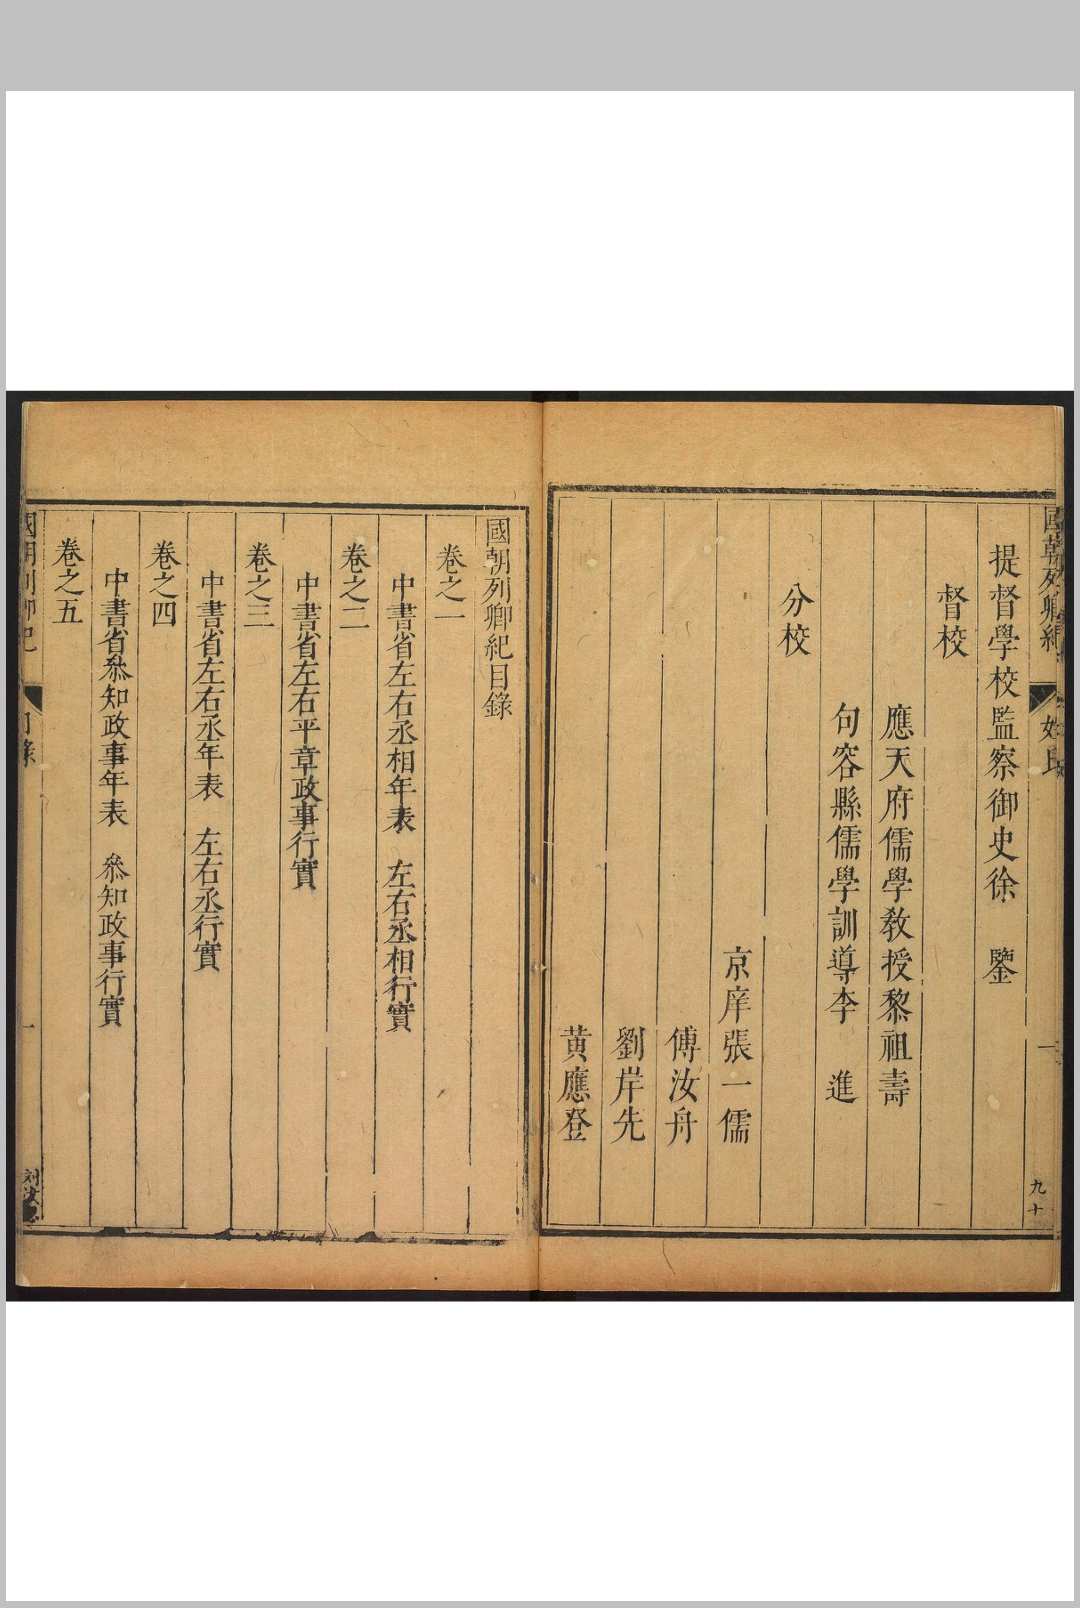 國朝列卿紀
姓氏
一
九十
提督學校監察御史徐　鑒
督校
應天府儒學教授黎祖壽
句容縣儒學訓導李　進
分校
京庠張一儒
傅汝舟
劉岸先
黃應登
國朝列卿紀目錄
卷之一
中書省左右丞相年表　左右丞相行實
卷之二
中書省左右平章政事行實
卷之三
中書省左右丞年表　左右丞行實
卷之四
中書省叅知政事年表　叅知政事行實
卷之五
國朝列卿紀
目錄
一